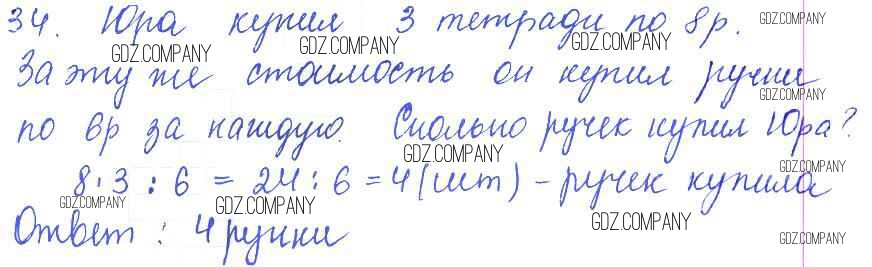 34. Юра купил 3 тетради по 8р.
GDZ.COMPANY GDZ.COMPANY GDZ.COMPANY GDZ.COMPANY
За эту же стоимость он купил ручки
GDZ.COMPANY
по 6р за каждую. Сколько ручек купил Юра?
GDZ.COMPANY GDZ.COMPANY
8·3 : 6 = 24 : 6 = 4 (шт) - ручек купила
GDZ.COMPANY GDZ.COMPANY GDZ.COMPANY
Ответ: 4 ручки
GDZ.COMPANY